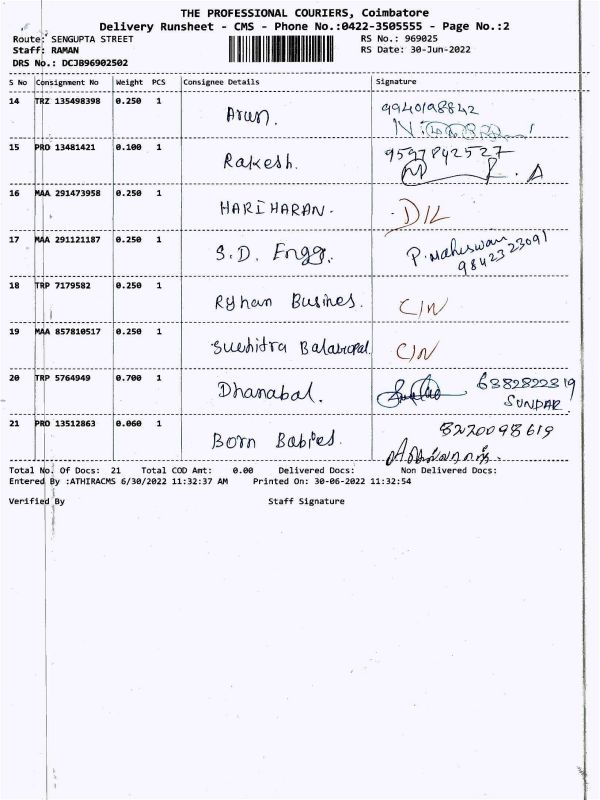 THE PROFESSIONAL COURIERS, Coimbatore
Delivery Runsheet - CMS - Phone No.:0422-3505555 - Page No.:2
Route: SENGUPTA STREET RS No.: 969025
Staff: RAMAN RS Date: 30-Jun-2022
DRS No.: DCJB96902502
S No Consignment No Weight PCS Consignee Details Signature
14 TRZ 135498398 0.250 1 Arun. 9940198842
15 PRO 13481421 0.100 1 Rakesh. 9597842527
16 MAA 291473958 0.250 1 HARIHARAN. D/L
17 MAA 291121187 0.250 1 S.D. Engg. P. Maheswari 9842323091
18 TRP 7179582 0.250 1 Ryhan Busines. C/N
19 MAA 857810517 0.250 1 Suchitra C/N
20 TRP 5764949 0.700 1 Dhanabal. 6382822319
SUNDAR
21 PRO 13512863 0.060 1 Born Babies. 8220098619
Total No. Of Docs: 21 Total COD Amt: 0.00 Delivered Docs: Non Delivered Docs:
Entered By :ATHIRACMS 6/30/2022 11:32:37 AM Printed On: 30-06-2022 11:32:54
Verified By Staff Signature